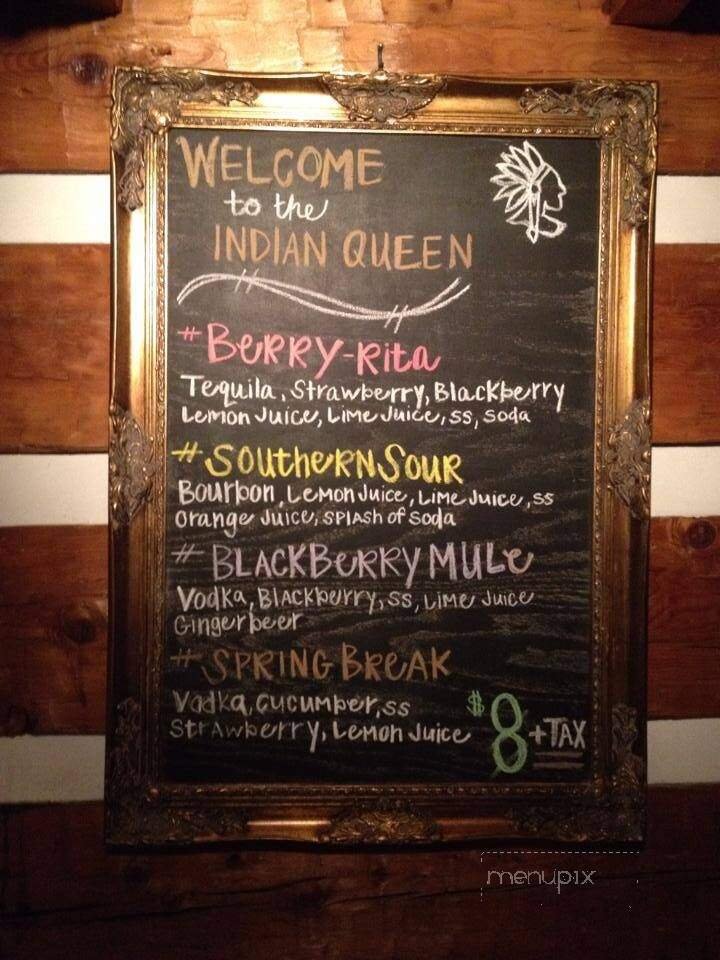 WELCOME
to the
INDIAN QUEEN
#BERRY-Rita
Tequila, Strawberry, Blackberry
Lemon Juice, Lime Juice, SS, Soda
#SOUTHERN SOUR
Bourbon, Lemon Juice, Lime Juice, SS
Orange Juice, SPLASH of Soda
#BLACKBERRY MULE
Vodka, Blackberry, SS, Lime Juice
Gingerbeer
#SPRING BREAK
Vodka, Cucumber, SS
Strawberry, Lemon Juice
$8 +TAX
menupix